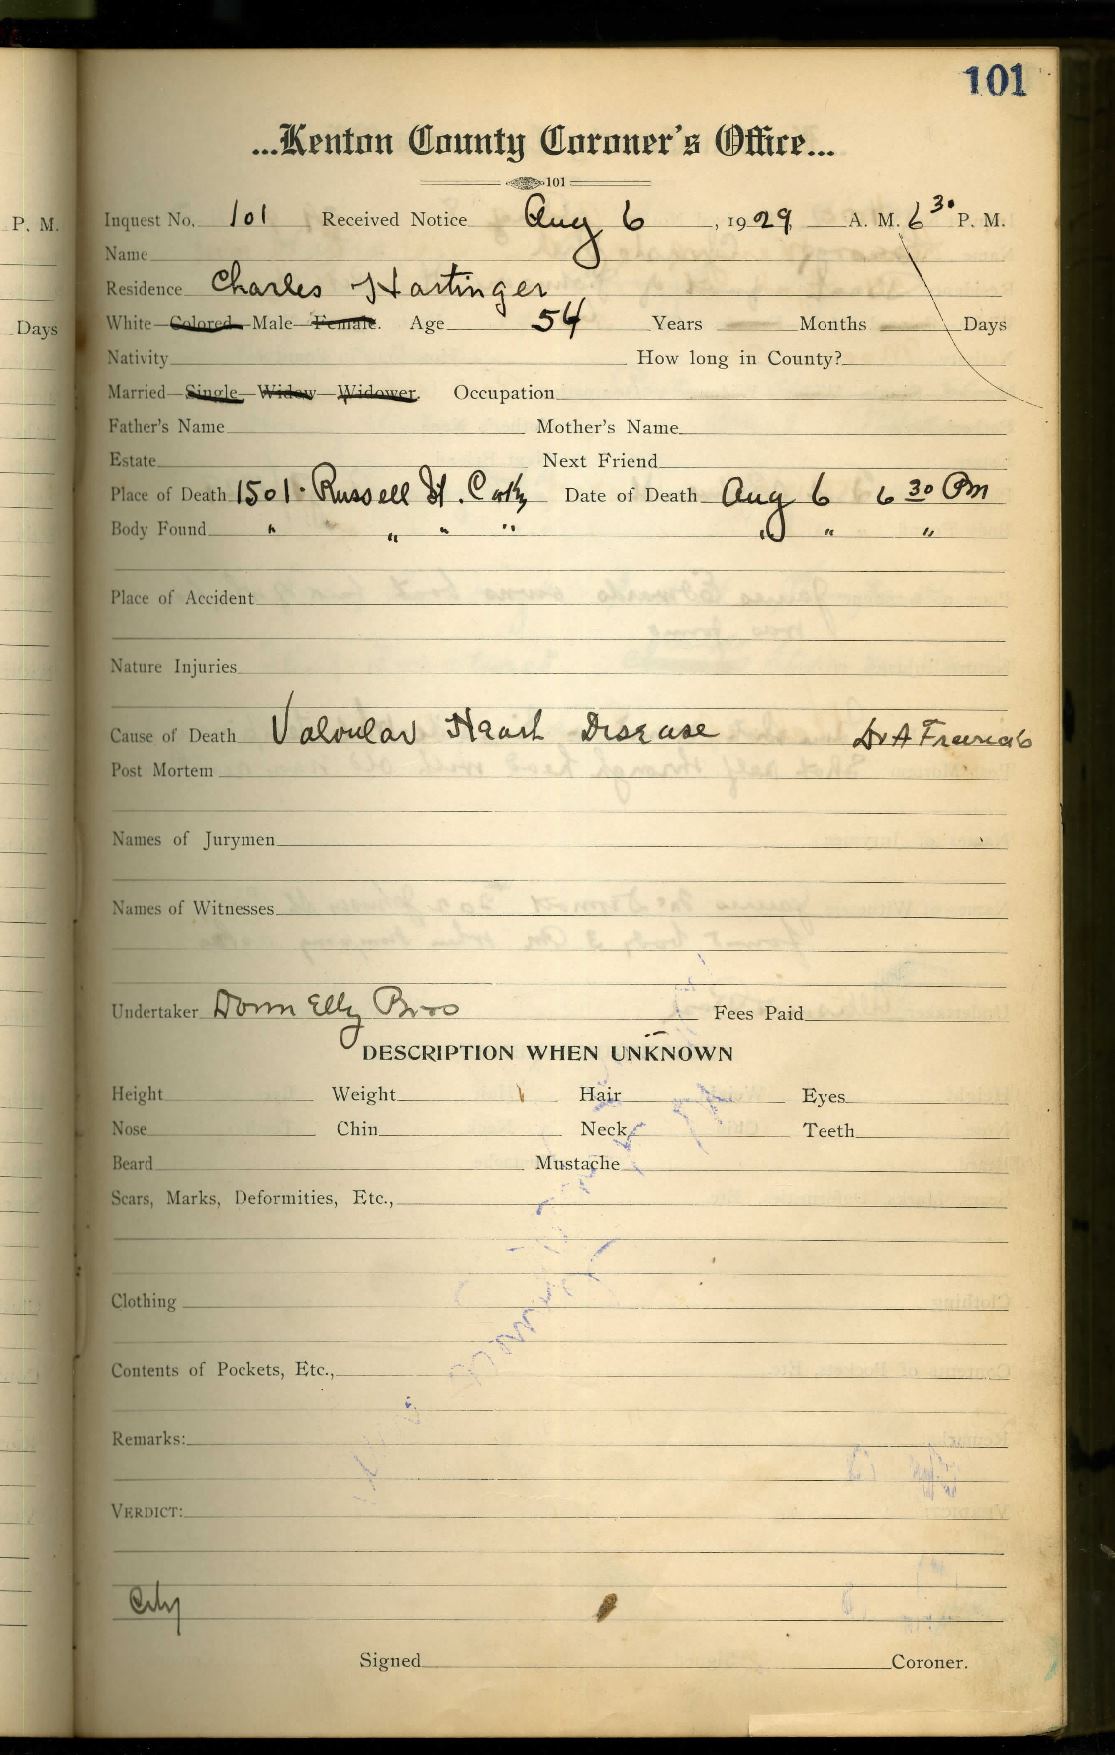 101
...Kenton County Coroner's Office...
101
P. M.
Inquest No. 101 Received Notice Aug 6, 1929 A. M. 6 30 P. M.
Name
Residence Charles Hartinger
Days
White Colored Male Female. Age 54 Years Months Days
Nativity How long in County?
Married Single Widow Widower. Occupation
Father's Name Mother's Name
Estate Next Friend
Place of Death 1501 Russell St. Date of Death Aug 6 6 30 Pm
Body Found " " " " " " "
Place of Accident
Nature Injuries
Cause of Death Valvular Heart Disease Dr A Francis
Post Mortem
Names of Jurymen
Names of Witnesses
Undertaker Donn Elly Bros Fees Paid
DESCRIPTION WHEN UNKNOWN
Height Weight Hair Eyes
Nose Chin Neck Teeth
Beard Mustache
Scars, Marks, Deformities, Etc.,
Clothing
Contents of Pockets, Etc.,
Remarks:
VERDICT:
City
Signed Coroner.